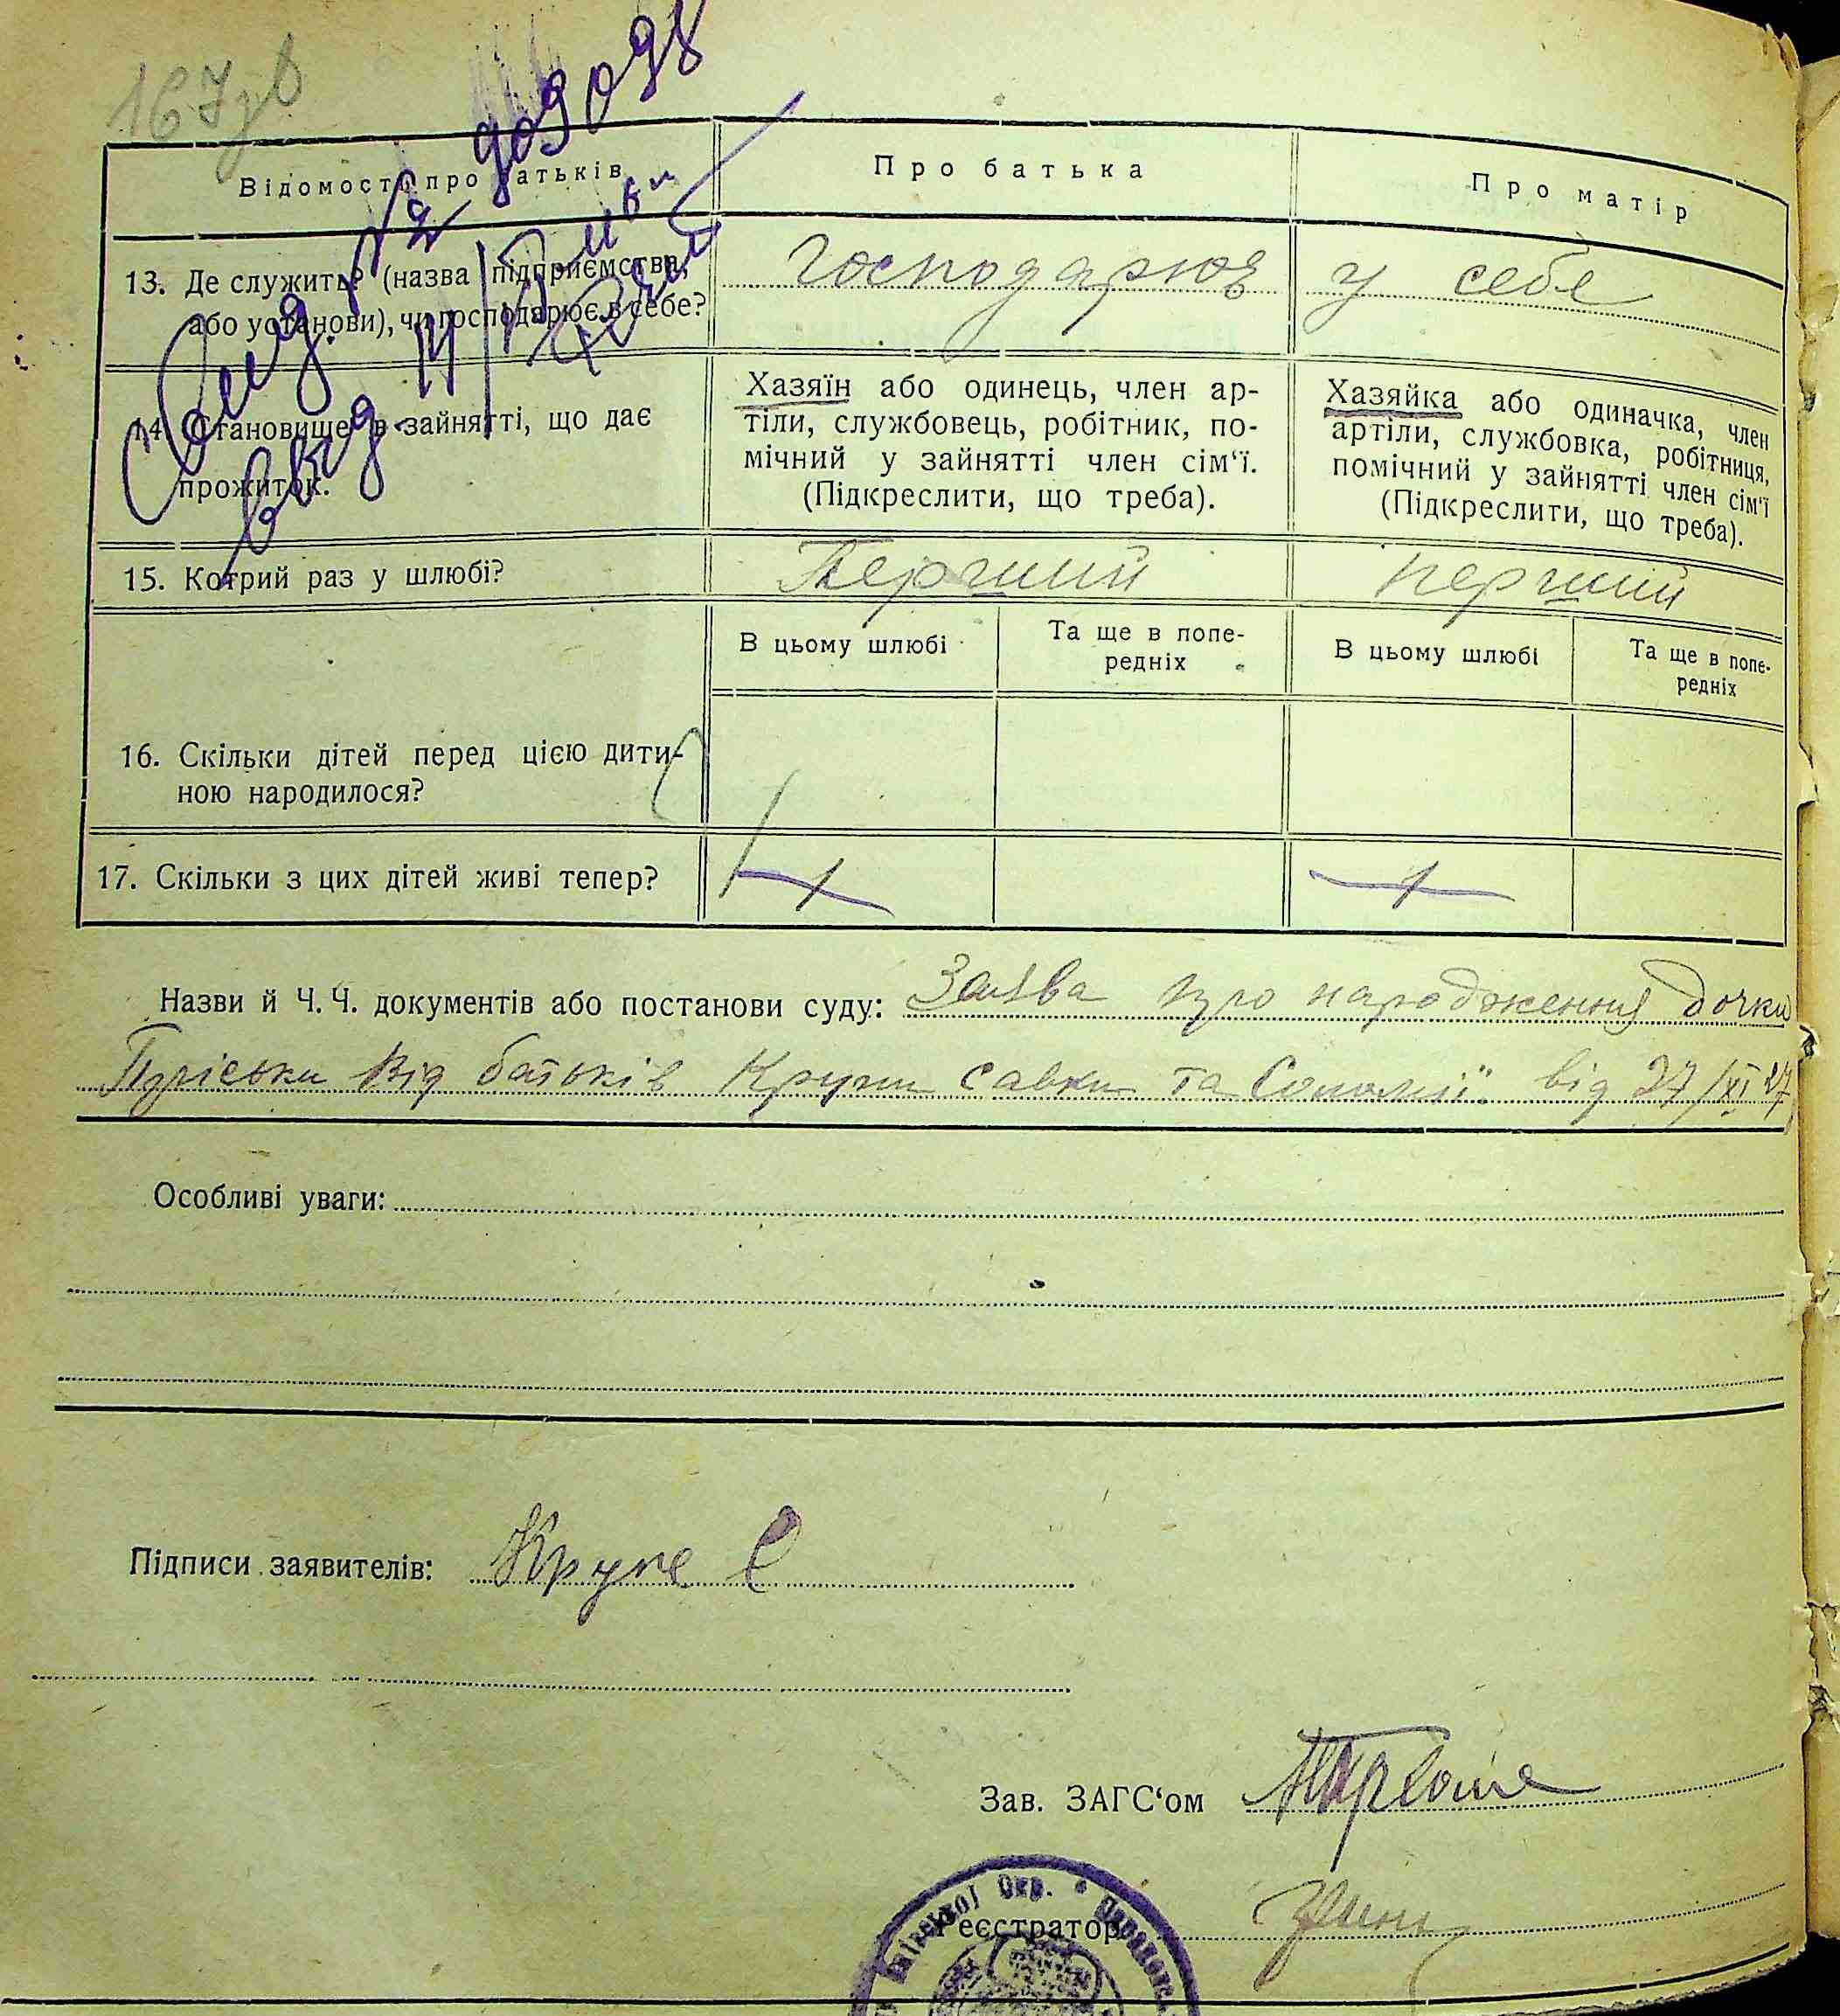 167зв
Відомості про батьків
Про батька
Про матір
13. Де служить? (назва підприємства,
або установи), чи господарює в себе?
господарює у себе
14. Становище в зайнятті, що дає
прожиток.
Хазяїн або одинець, член ар-
тіли, службовець, робітник, по-
мічний у зайнятті член сім‘ї.
(Підкреслити, що треба).
Хазяйка або одиначка, член
артіли, службовка, робітниця,
помічний у зайнятті член сім‘ї
(Підкреслити, що треба).
15. Котрий раз у шлюбі?
Перший
перший
В цьому шлюбі
Та ще в попе-
редніх
В цьому шлюбі
Та ще в попе-
редніх
16. Скільки дітей перед цією дити-
ною народилося?
17. Скільки з цих дітей живі тепер?
Назви й Ч. Ч. документів або постанови суду: Заява про народження дочки
Пріськи від батьків Крупи Савки та Соломії від 27/XI 27
Особливі уваги:
Підписи заявителів: Крупа С
Зав. ЗАГС‘ом
Реєстратор
Київської Окр.